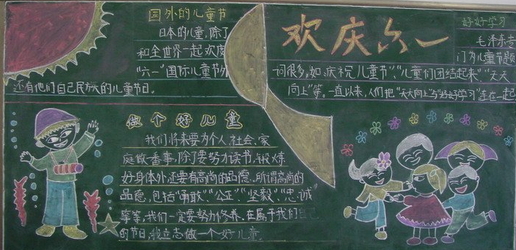 国外的儿童节
日本的儿童,除了
和全世界一起欢度
"六一"国际儿童节外
还有他们自己民族的儿童节日。
欢庆六一
好好学习
毛泽东
门为儿童节题
词很多,如,庆祝儿童节""儿童们团结起来""天天
向上"等。一直以来,人们把"天天向上"与"好好学习"连在一起
做个好儿童
我们将来要为个人,社会,家
庭做善事,除了要努力读书,锻炼
好身体外还要有高尚的品德,所谓高尚的
品德,包括"勇敢""公正""坚毅""忠诚"
等等,我们一定要努力修养,在属于我们
的节日,我立志做一个好儿童。